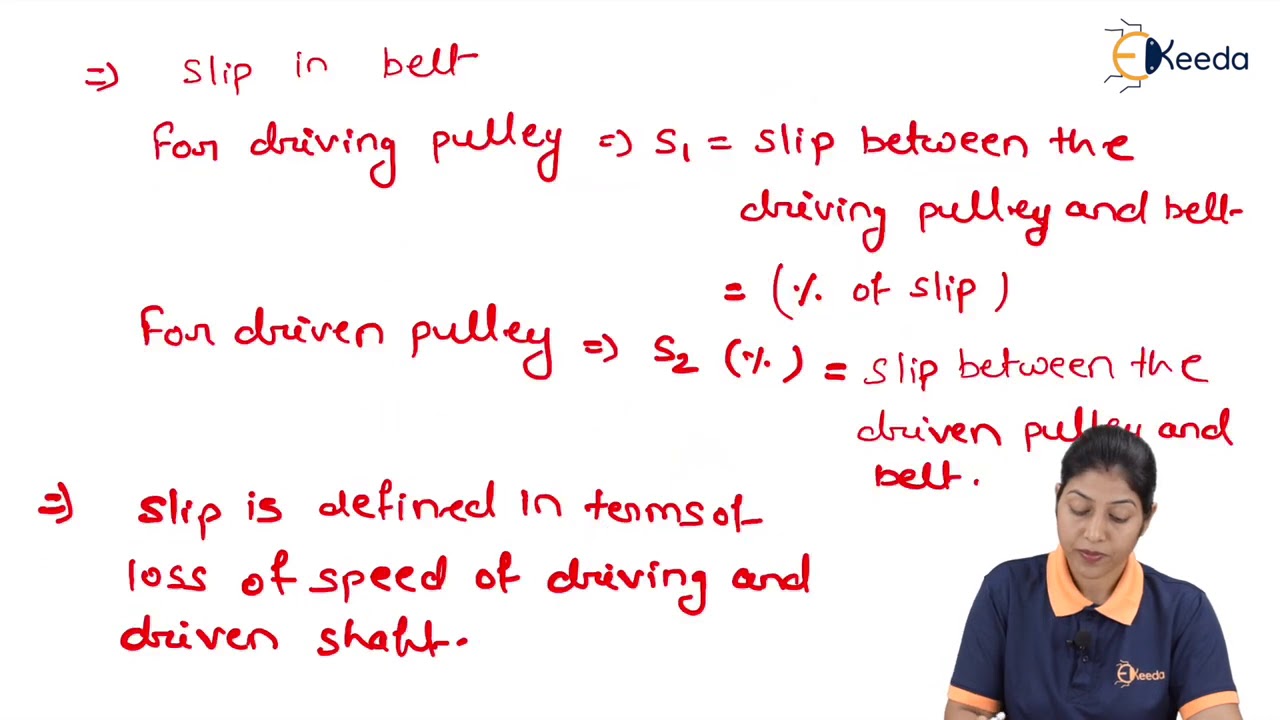 EKeeda
=> slip in belt
For driving pulley => S1 = slip between the
driving pulley and belt
= (% of slip)
For driven pulley => S2 (%) = slip between the
driven pulley and
belt.
=> slip is defined in terms of
loss of speed of driving and
driven shaft.
EKeeda